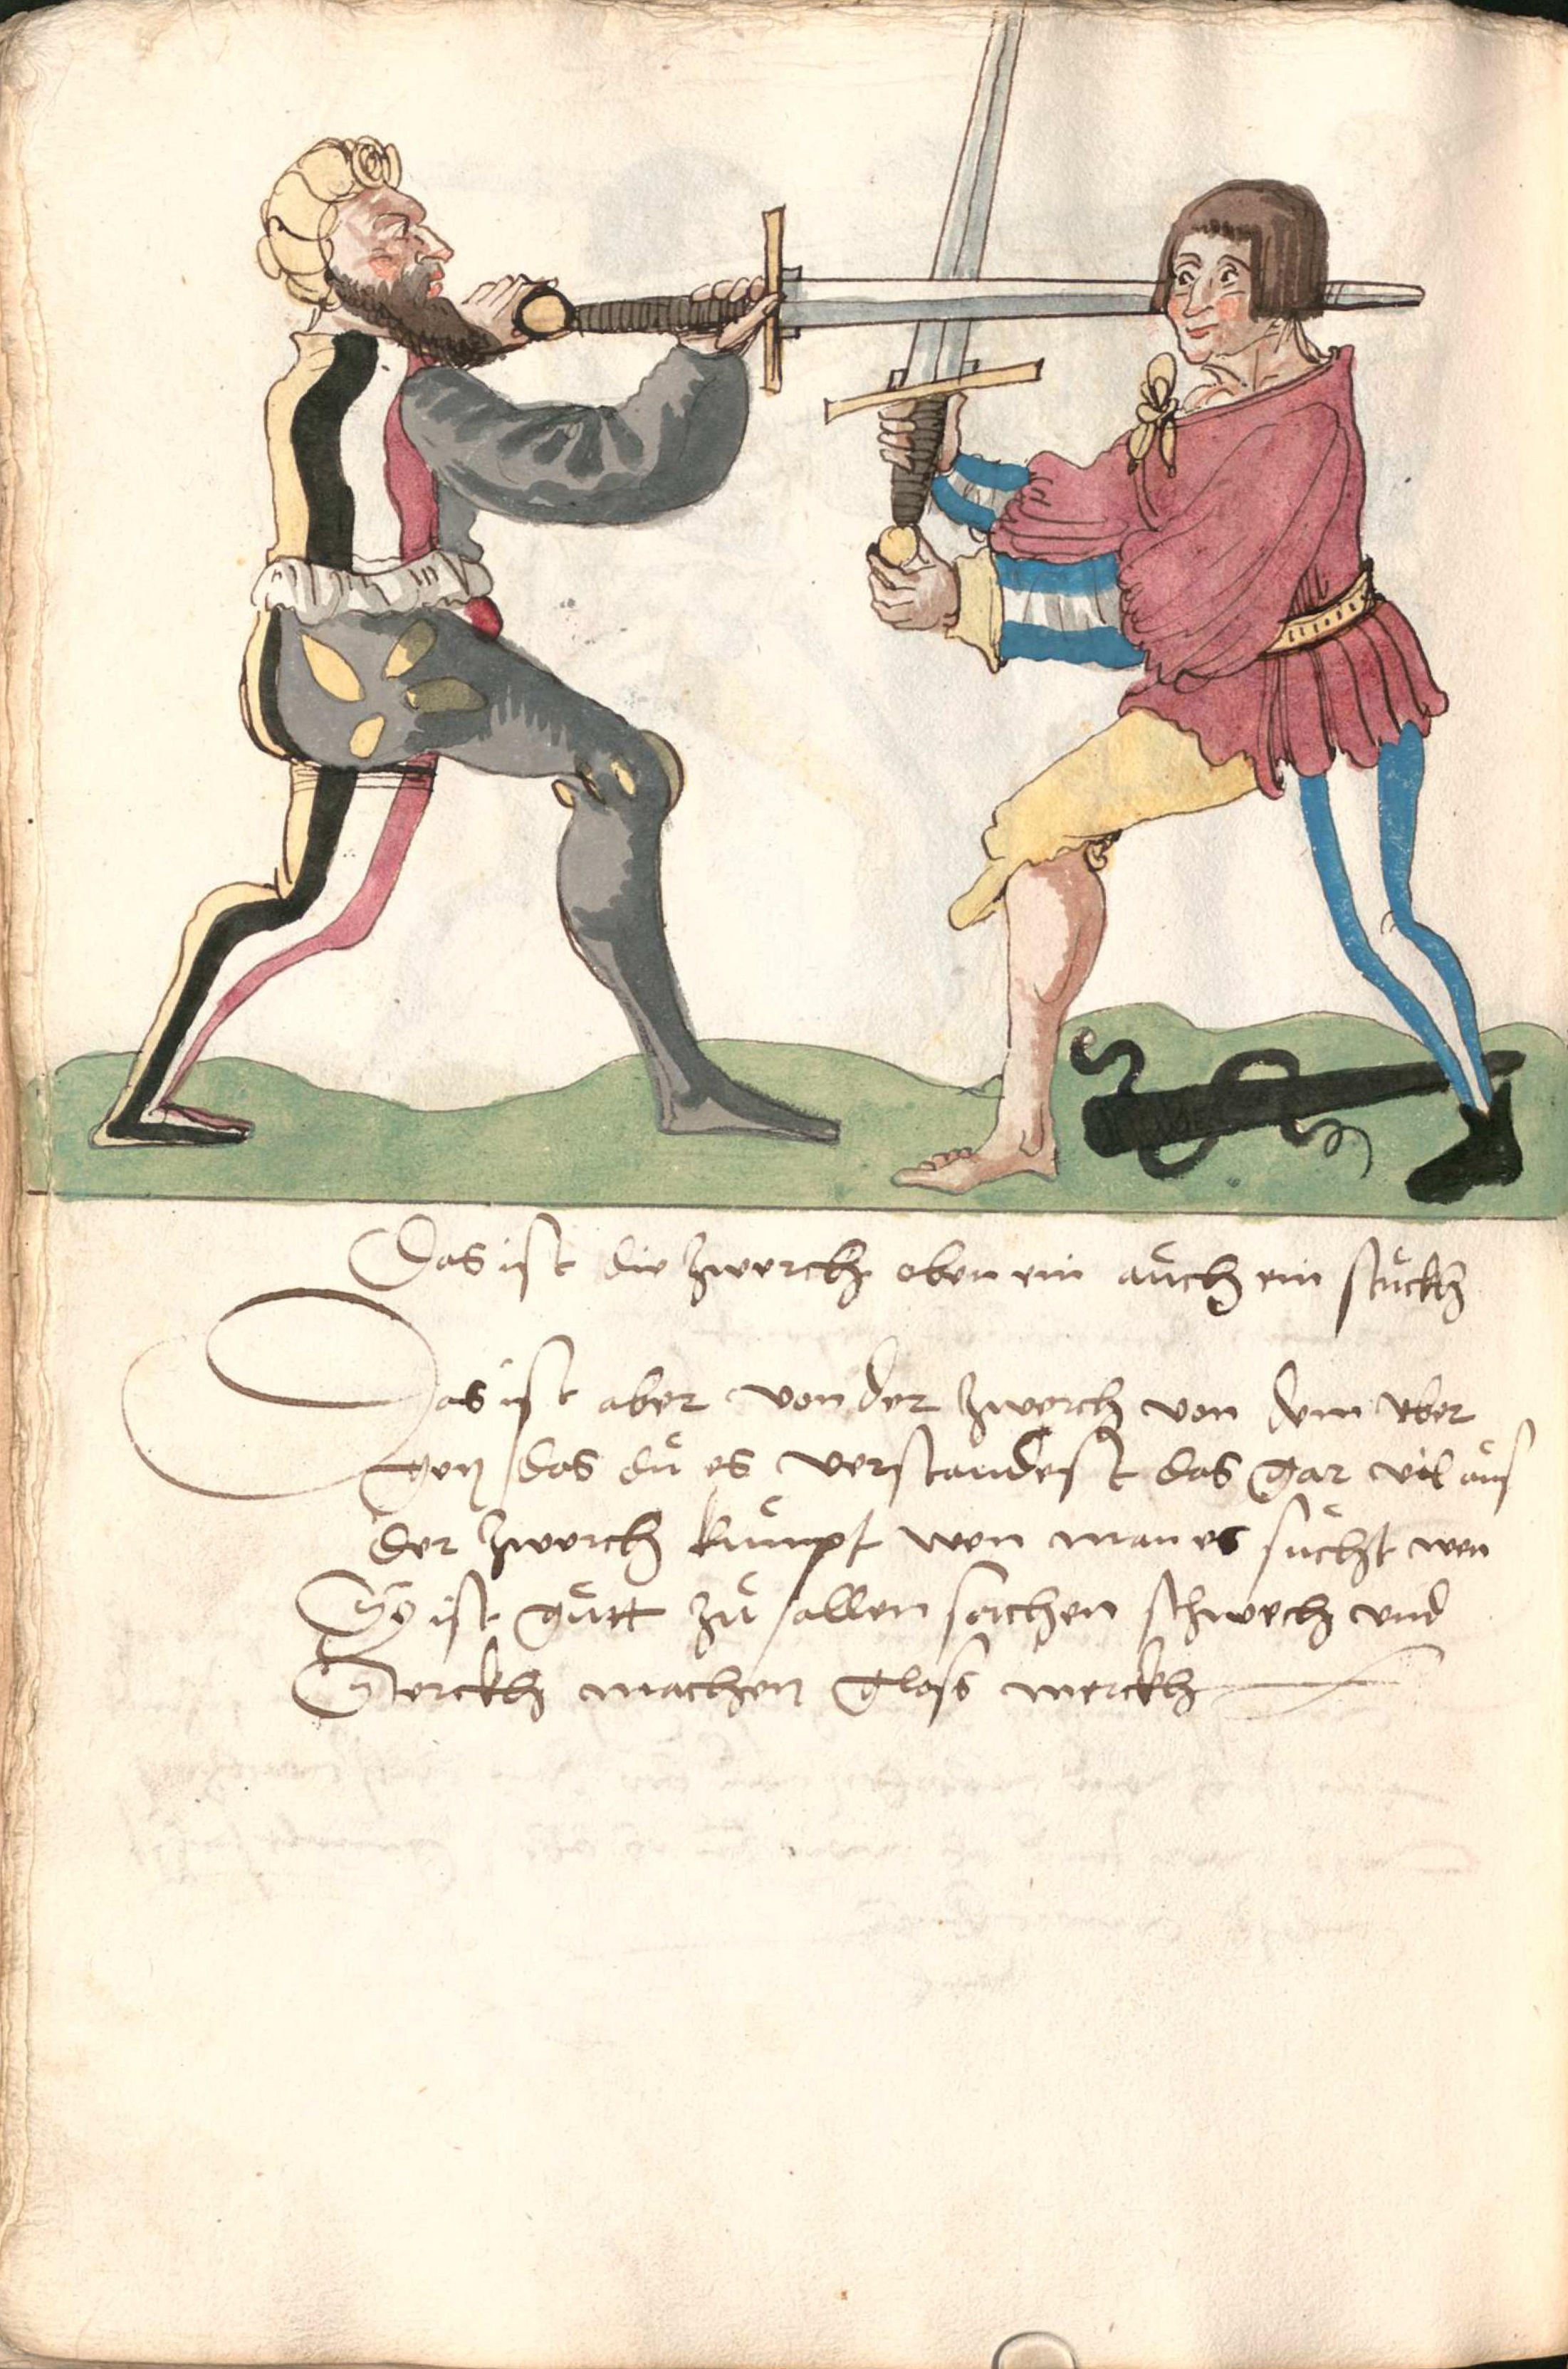 Das ist die zwerch oben ein aůch ein stůckh
Das ist aber von der zwerch von dem vber
gen das dů es verstandest das gar vil aůs
der zwerch kůmpt wen man es sůcht wen
So ist gůtt zů allen sachen schwech vnd
Sterckh machen gloss merckh